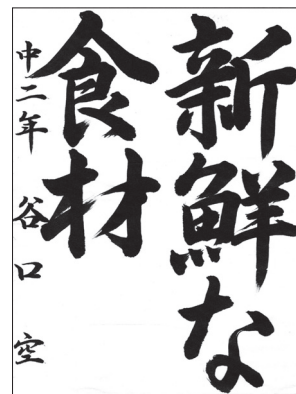 新鮮な
食材
中二年 谷口 空